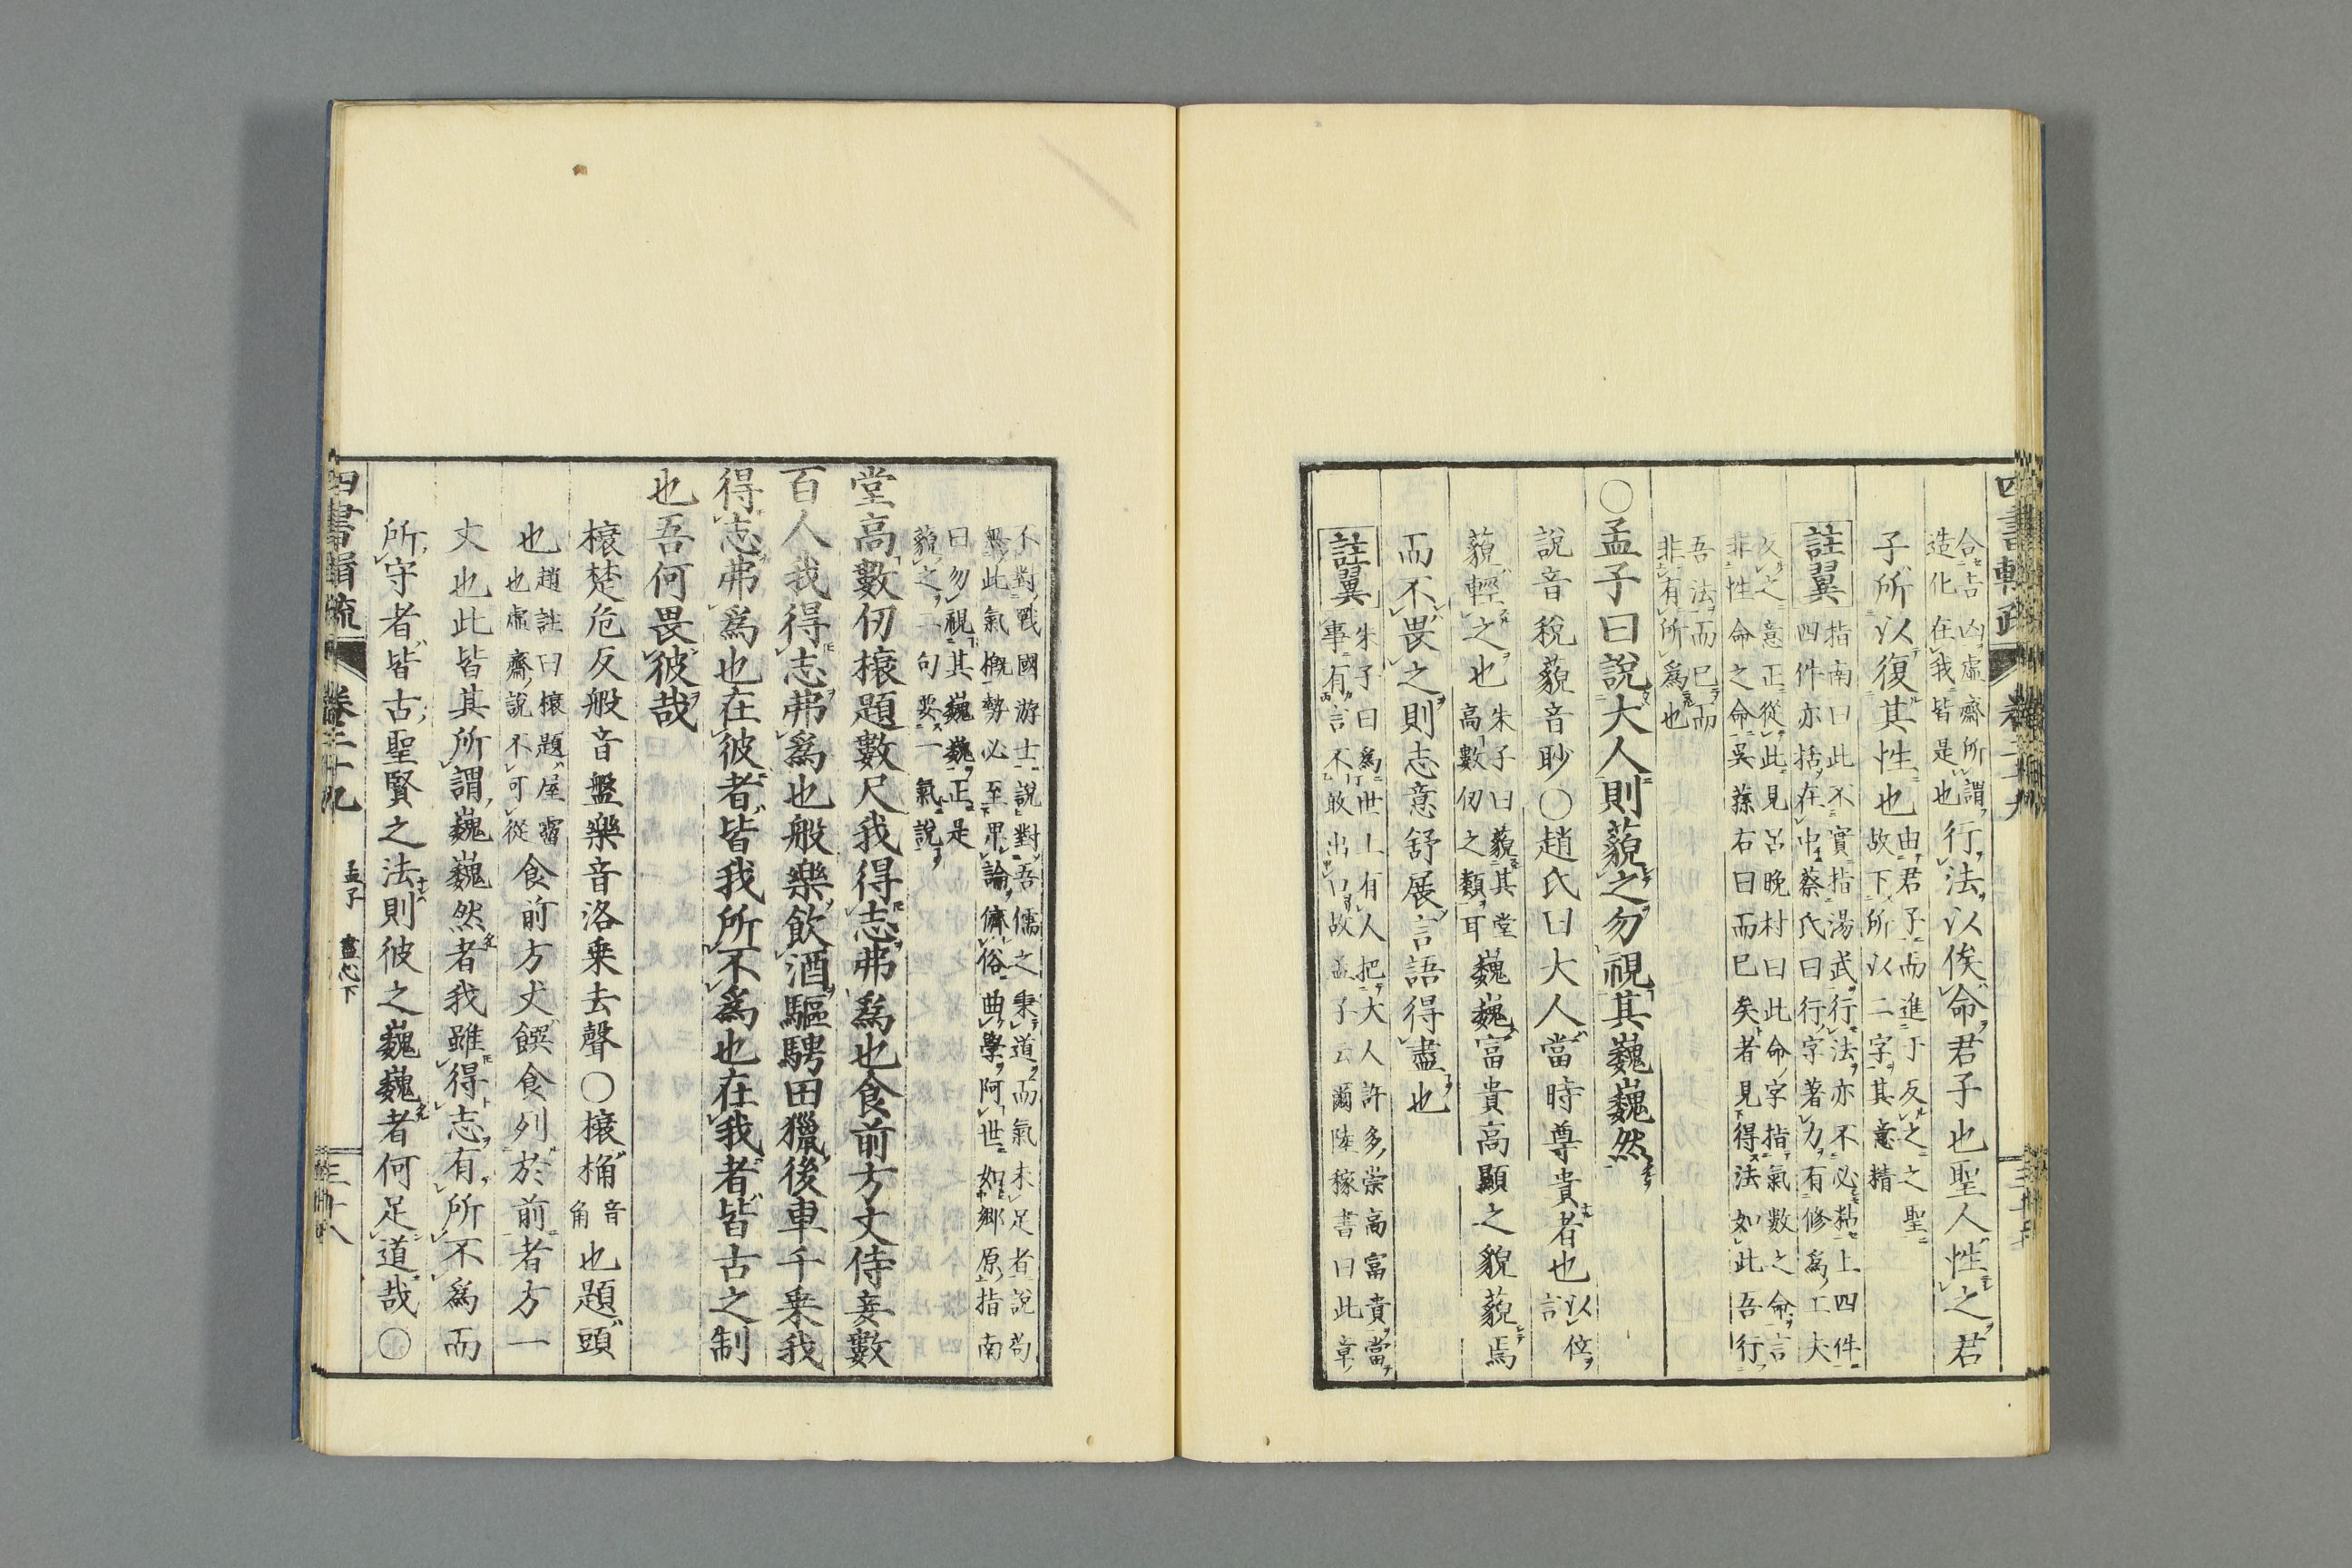 合占凶虛齋所謂
造化在我皆是也
行法以俟命君子也聖人性之君
子所以復其性也
由君子而進于反之之聖
故下所以二字其意精
註翼
指南曰此不實指湯武行法亦不必黏上四件
四件亦括在中蔡氏曰行字著力有修爲工夫
之意正從此見呂晚村曰此命字指氣數之命言
非性命之命吳蓀右曰而已矣者見得法如此吾行
吾法而已而
非有所爲也
○孟子曰說大人則藐之勿視其巍巍然
說音稅藐音眇○趙氏曰大人當時尊貴者也
以位
言
藐輕之也
朱子曰藐其堂
高數仞之類耳
巍巍富貴高顯之貌藐焉
而不畏之則志意舒展言語得盡也
註翼
朱子曰爲世上有人把大人許多崇高富貴當
事有言不敢出口故孟子云爾陸稼書曰此章
不對戰國游士說對吾儒之秉道而氣未足者說苟
無此氣槪勢必至卑論儕俗曲學阿世如鄉原指南
曰勿視其巍巍正是
藐之一句要一氣說
堂高數仞榱題數尺我得志弗爲也食前方丈侍妾數
百人我得志弗爲也般樂飲酒驅騁田獵後車千乗我
得志弗爲也在彼者皆我所不爲也在我者皆古之制
也吾何畏彼哉
榱楚危反般音盤樂音洛乗去聲○榱桷
音
角
也題頭
也
趙註曰榱題屋霤
也虛齋說不可從
食前方丈饌食列於前者方一
丈也此皆其所謂巍巍然者我雖得志有所不爲而
所守者皆古聖賢之法則彼之巍巍者何足道哉○
卷二十九
孟子
盡心下
三十八